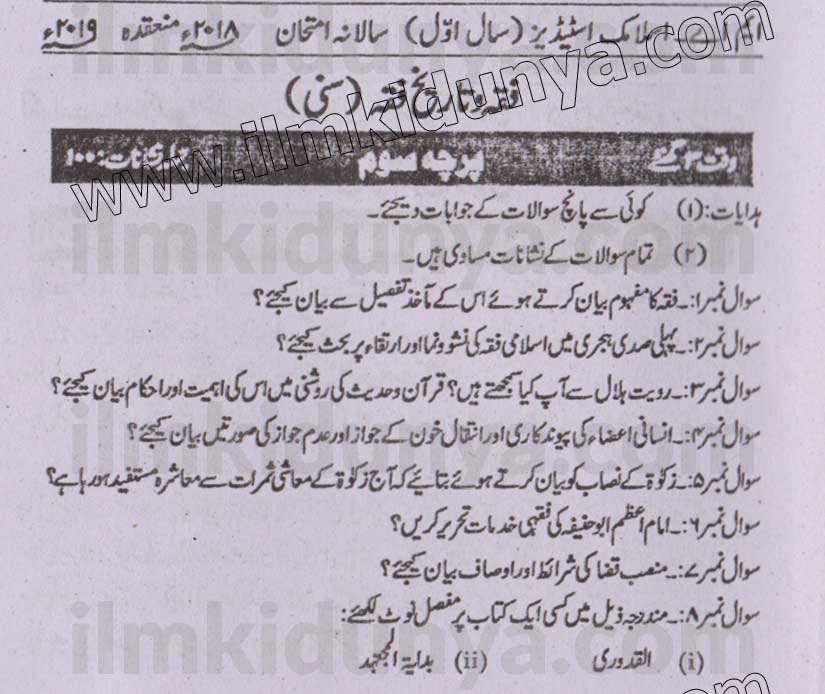 ایم اے۔ اسلامک اسٹیڈیز (سال اوّل) سالانہ امتحان ۲۰۱۸ء منعقدہ ۲۰۱۹ء
فقہ و تاریخ فقہ (سنی)
وقت ۳ گھنٹے پرچہ سوم کل نشانات: ۱۰۰
www.ilmkidunya.com
ہدایات: (۱) کوئی سے پانچ سوالات کے جوابات دیجئے۔
(۲) تمام سوالات کے نشانات مساوی ہیں۔
سوال نمبر۱:۔ فقہ کا مفہوم بیان کرتے ہوئے اس کے مآخذ تفصیل سے بیان کیجئے؟
سوال نمبر۲:۔ پہلی صدی ہجری میں اسلامی فقہ کی نشوونما اور ارتقاء پر بحث کیجئے؟
سوال نمبر۳:۔ رویت ہلال سے آپ کیا سمجھتے ہیں؟ قرآن و حدیث کی روشنی میں اس کی اہمیت اور احکام بیان کیجئے؟
سوال نمبر۴:۔ انسانی اعضاء کی پیوندکاری اور انتقال خون کے جواز اور عدم جواز کی صورتیں بیان کیجئے؟
سوال نمبر۵:۔ زکوٰۃ کے نصاب کو بیان کرتے ہوئے بتائیے کہ آج زکوٰۃ کے معاشی ثمرات سے معاشرہ مستفید ہو رہا ہے؟
سوال نمبر۶:۔ امام اعظم ابوحنیفہ کی فقہی خدمات تحریر کریں؟
سوال نمبر۷:۔ منصب قضا کی شرائط اور اوصاف بیان کیجئے؟
سوال نمبر۸:۔ مندرجہ ذیل میں کسی ایک کتاب پر مفصل نوٹ لکھئے:
(i) القدوری (ii) بدایۃ المجتہد
ilmkidunya.com
ilmkidunya.com
ilmkidunya.com